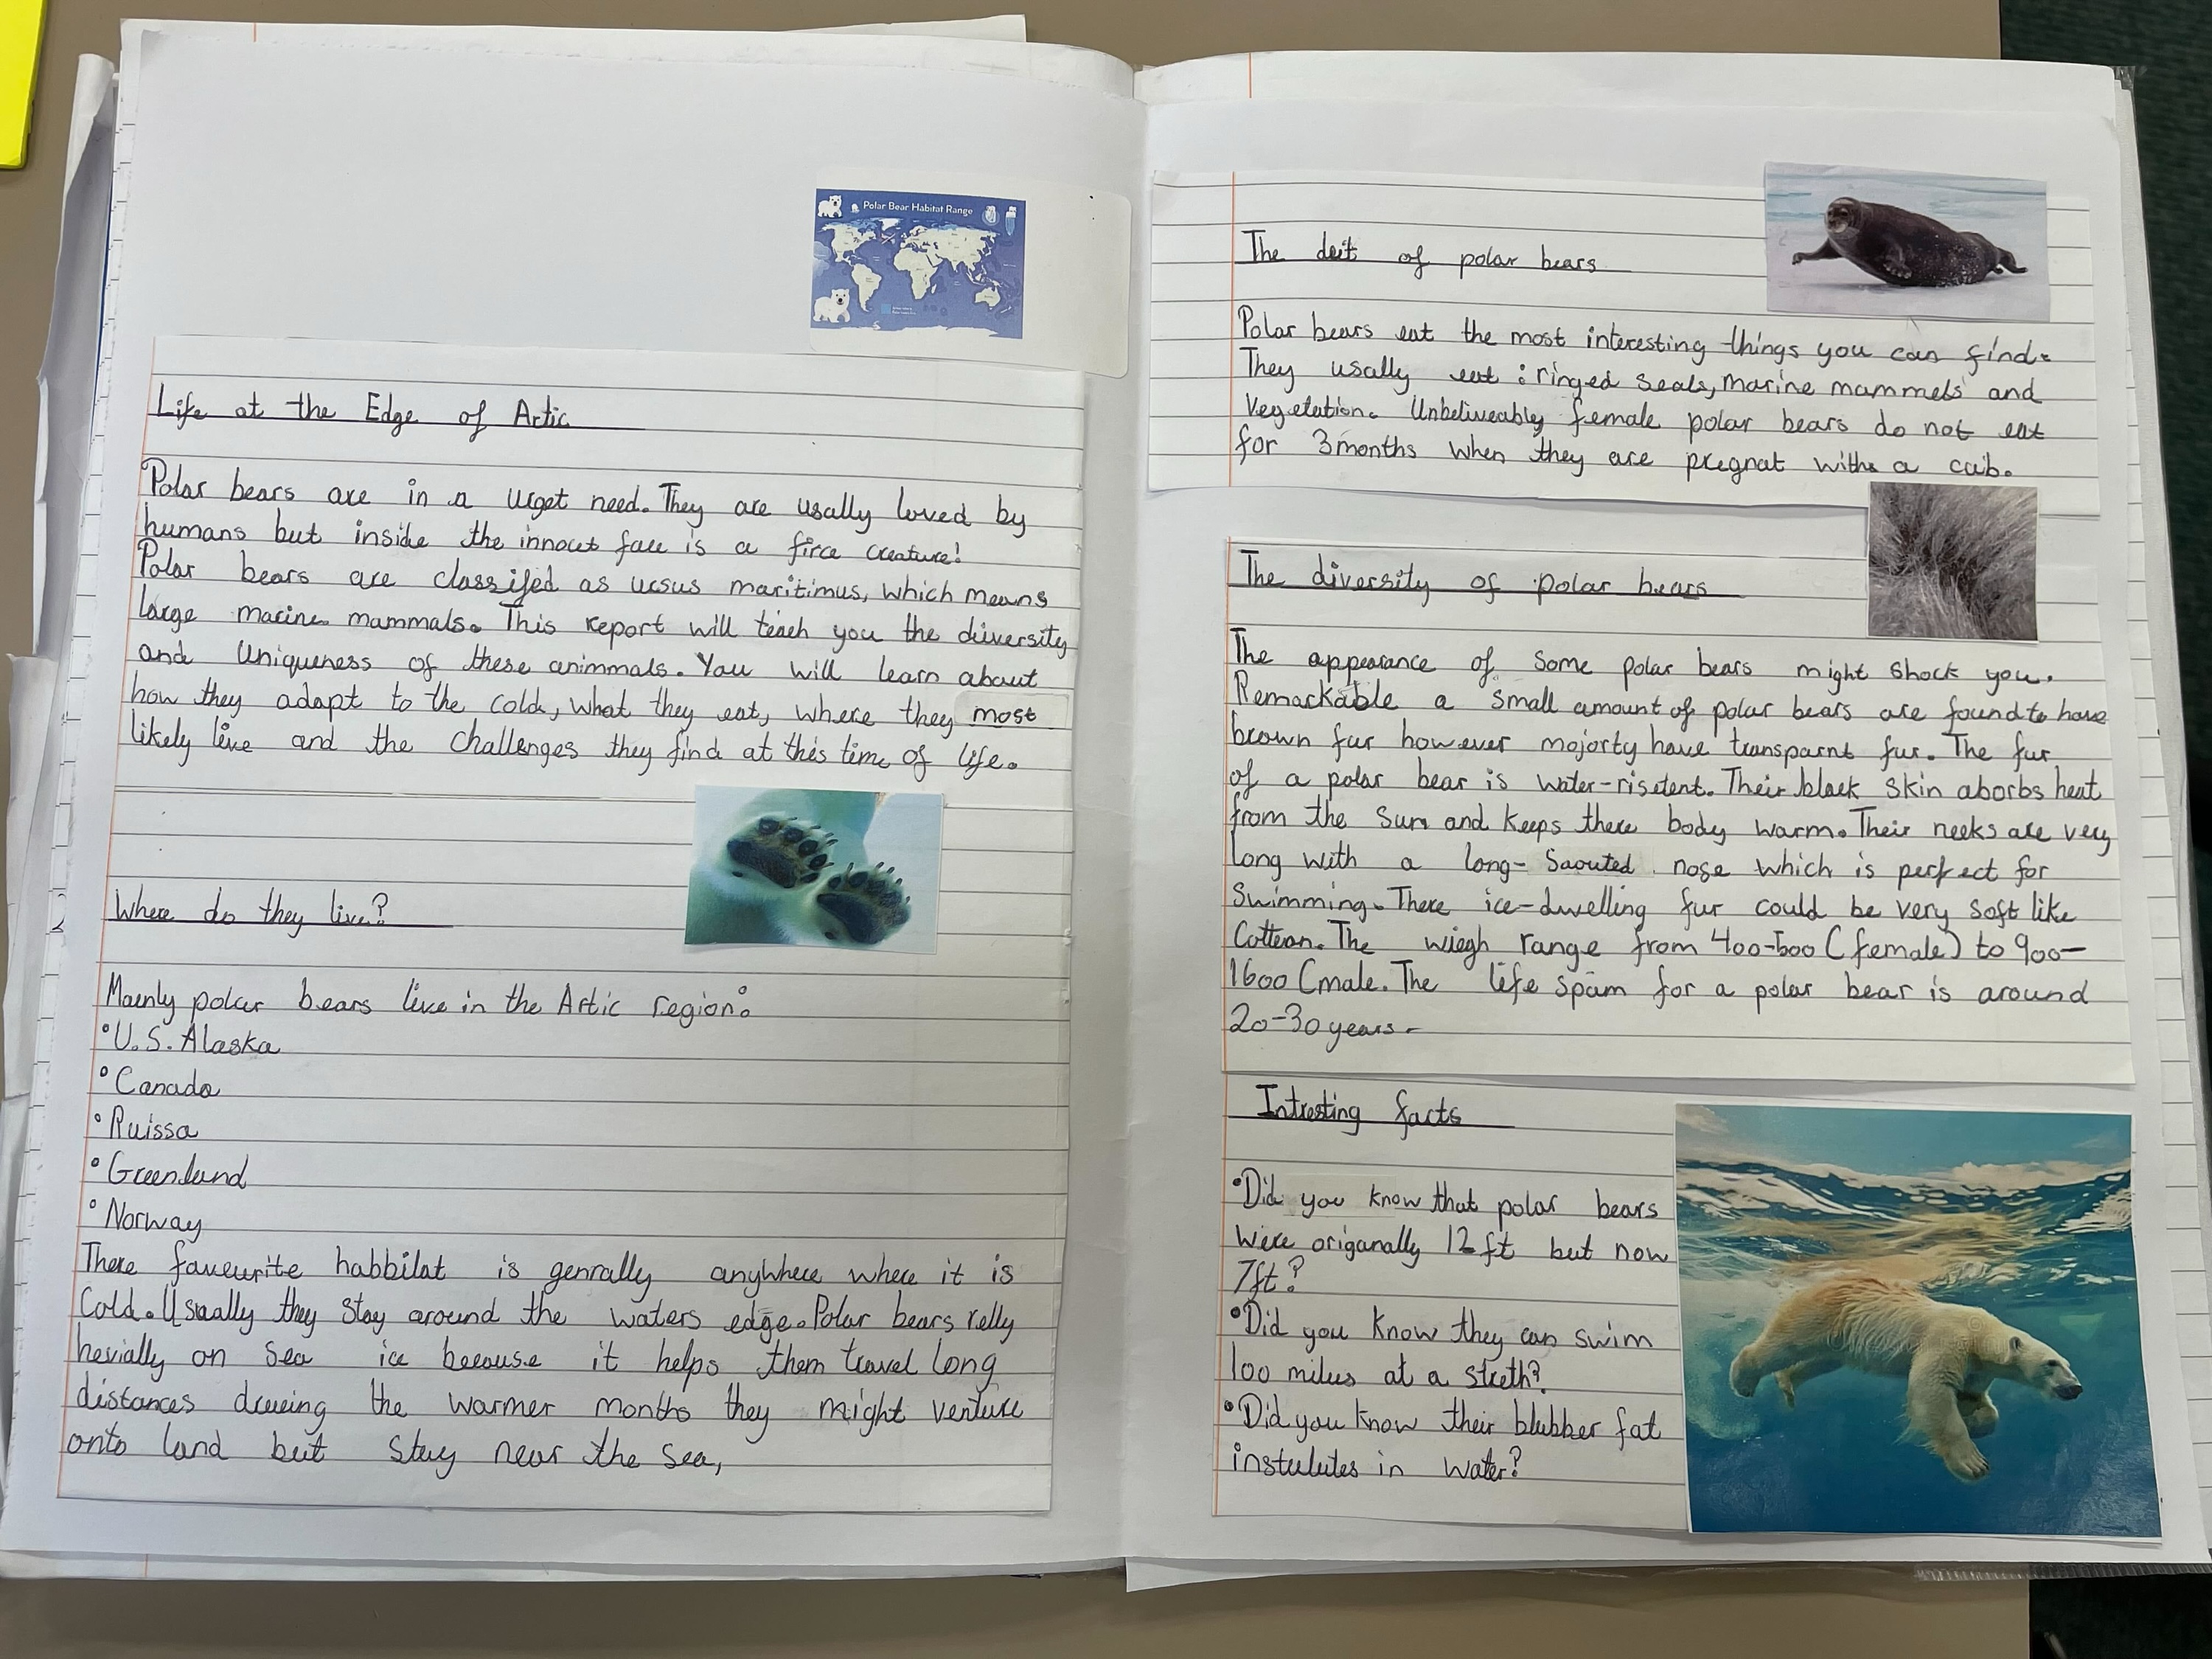 Polar Bear Habitat Range
Life at the Edge of Artic
Polar bears are in a urget need. They are usally loved by
humans but inside the innocet face is a firce creature!
Polar bears are classifed as ursus maritimus, which means
large marine mammals. This report will teach you the diversity
and Uniqueness of these animmals. You will learn about
how they adapt to the cold, what they eat, where they most
likely live and the challenges they find at this time of life.
Where do they live?
Mainly polar bears live in the Artic region:
°U.S. Alaska
°Canada
°Ruissa
°Greenland
°Norway
There faveurite habbilat is genrally anywhere where it is
Cold. Usually they stay around the waters edge. Polar bears relly
hevially on Sea ice because it helps them travel long
distances dureing the warmer months they might venture
onto land but stay near the sea,
The deit of polar bears
Polar bears eat the most interesting things you can find.
They usally eat : ringed seals, marine mammels and
Vegetation. Unbeliveably female polar bears do not eat
for 3months when they are pregnat with a cub.
The diversity of polar bears
The appearance of some polar bears might shock you.
Remarkable a small amount of polar bears are found to have
brown fur however majorty have transparnt fur. The fur
of a polar bear is water-risetent. Their black skin aborbs heat
from the Sun and keeps there body warm. Their necks are very
long with a long- Saouted nose which is perfect for
Swimming. There ice-dwelling fur could be very soft like
Cottean. The wiegh range from 400-500 (female) to 900-
1600 (male. The life spam for a polar bear is around
20-30 years.
Intresting facts
°Did you know that polar bears
were origanally 12ft but now
7ft?
°Did you know they can swim
100 miles at a streth?
°Did you know their blubber fat
instulutes in water?